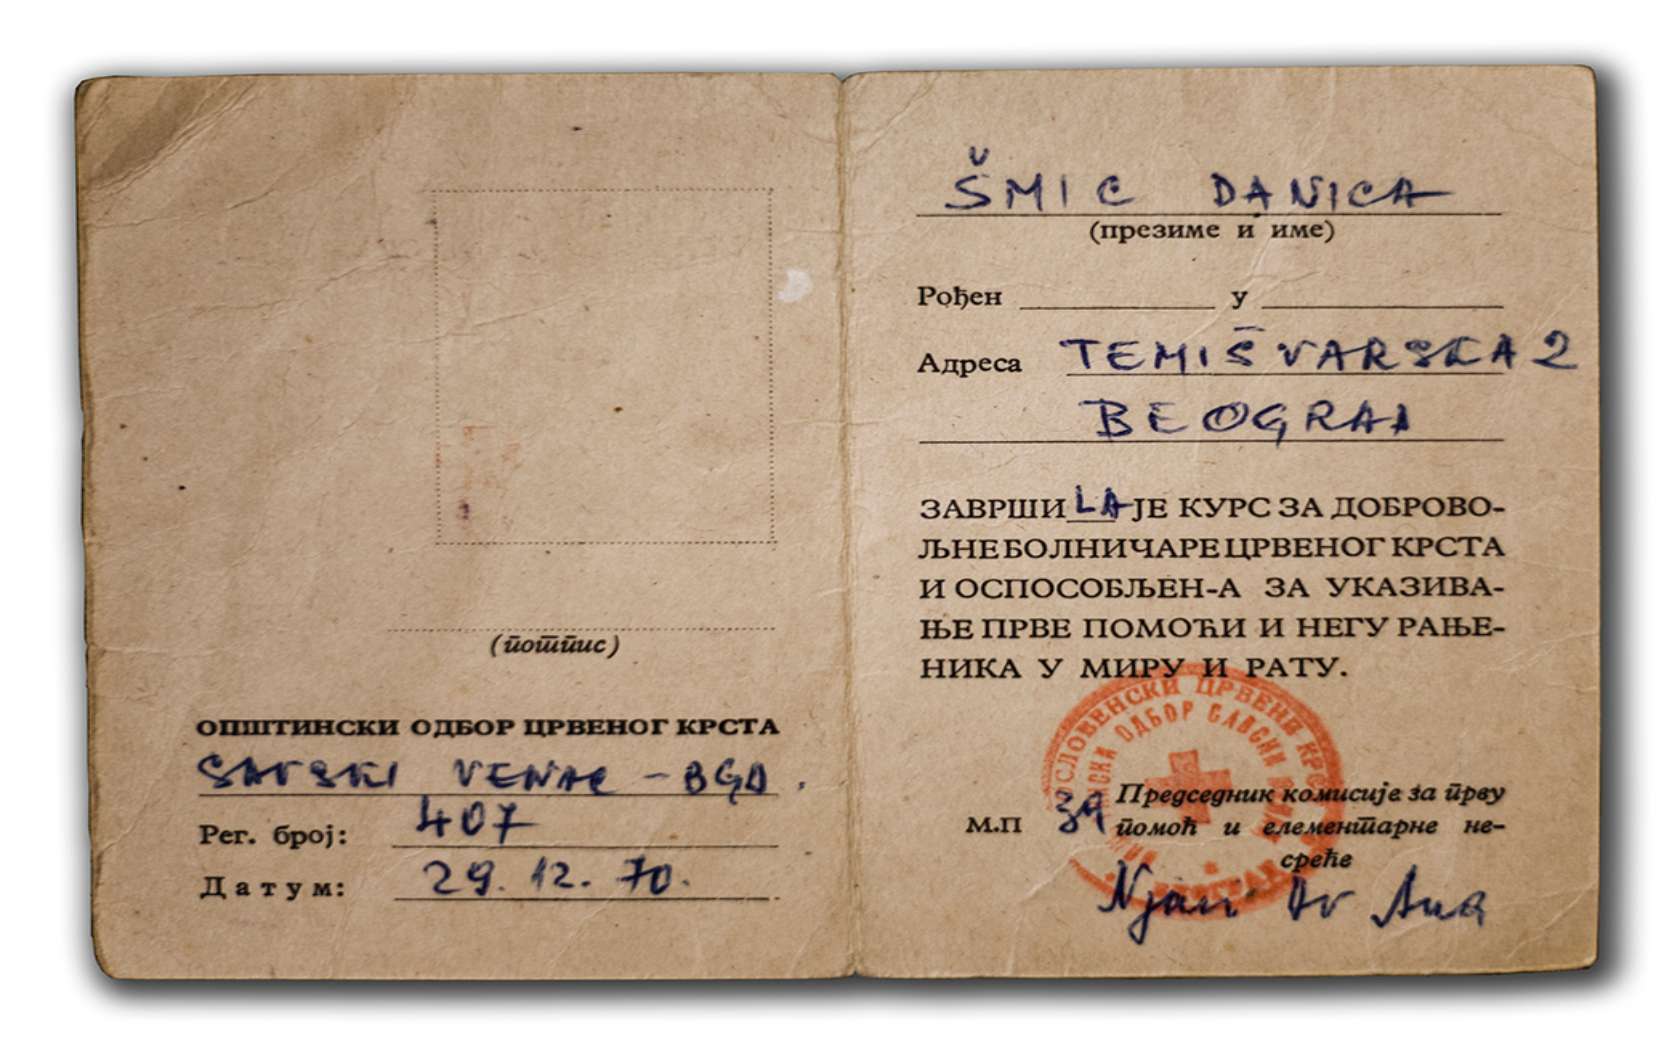 (потпис)
ОПШТИНСКИ ОДБОР ЦРВЕНОГ КРСТА
SAVSKI VENAC - BGD.
Рег. број: 407
Датум: 29. 12. 70.
ŠMIC DANICA
(презиме и име)
Рођен у
Адреса TEMIŠVARSKA 2
BEOGRAD
ЗАВРШИLA ЈЕ КУРС ЗА ДОБРОВО-
ЉНЕ БОЛНИЧАРЕ ЦРВЕНОГ КРСТА
И ОСПОСОБЉЕН-А ЗА УКАЗИВА-
ЊЕ ПРВЕ ПОМОЋИ И НЕГУ РАЊЕ-
НИКА У МИРУ И РАТУ.
ЦРВЕНИ
ОДБОР
Председник комисије за прву
М.П за помоћ и елементарне не-
среће
Dr Ana